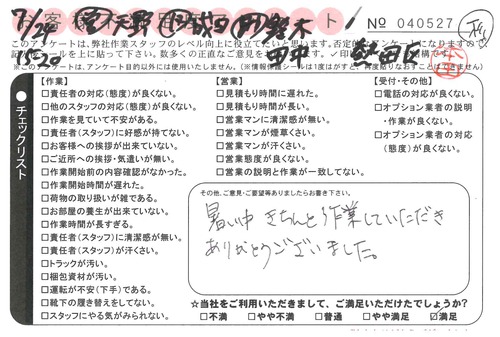 7/24
15:20
No 040527
このアンケートは、弊社作業スタッフのレベル向上に役立てたいと思います。
※このアンケートは、アンケート目的以外には使用いたしません。
チェックリスト
【作業】
□責任者の対応(態度)が良くない。
□他のスタッフの対応(態度)が良くない。
□作業を見ていて不安がある。
□責任者(スタッフ)に好感が持てない。
□お客様への挨拶が出来ていない。
□ご近所への挨拶・気遣いが無い。
□作業開始前の内容確認がなかった。
□作業開始時間が遅れた。
□荷物の取り扱いが雑である。
□お部屋の養生が出来ていない。
□作業時間が長すぎる。
□責任者(スタッフ)に清潔感が無い。
□責任者(スタッフ)が汗くさい。
□トラックが汚い。
□梱包資材が汚い。
□運転が不安(下手)である。
□靴下の履き替えをしてない。
□スタッフにやる気がみられない。
【営業】
□見積もり時間に遅れた。
□見積もり時間が長い。
□営業マンに清潔感が無い。
□営業マンが煙草くさい。
□営業マンが汗くさい。
□営業態度が良くない。
□営業の説明と作業が一致してない。
【受付・その他】
□電話の対応が良くない。
□オプション業者の説明
・作業が良くない。
□オプション業者の対応
(態度)が良くない。
その他、ご意見・ご要望等ありましたらお書き下さい。
暑い中 きちんと作業していただき
ありがとうございました。
☆当社をご利用いただきまして、ご満足いただけたでしょうか?
□不満 □やや不満 □普通 □やや満足 ☑満足